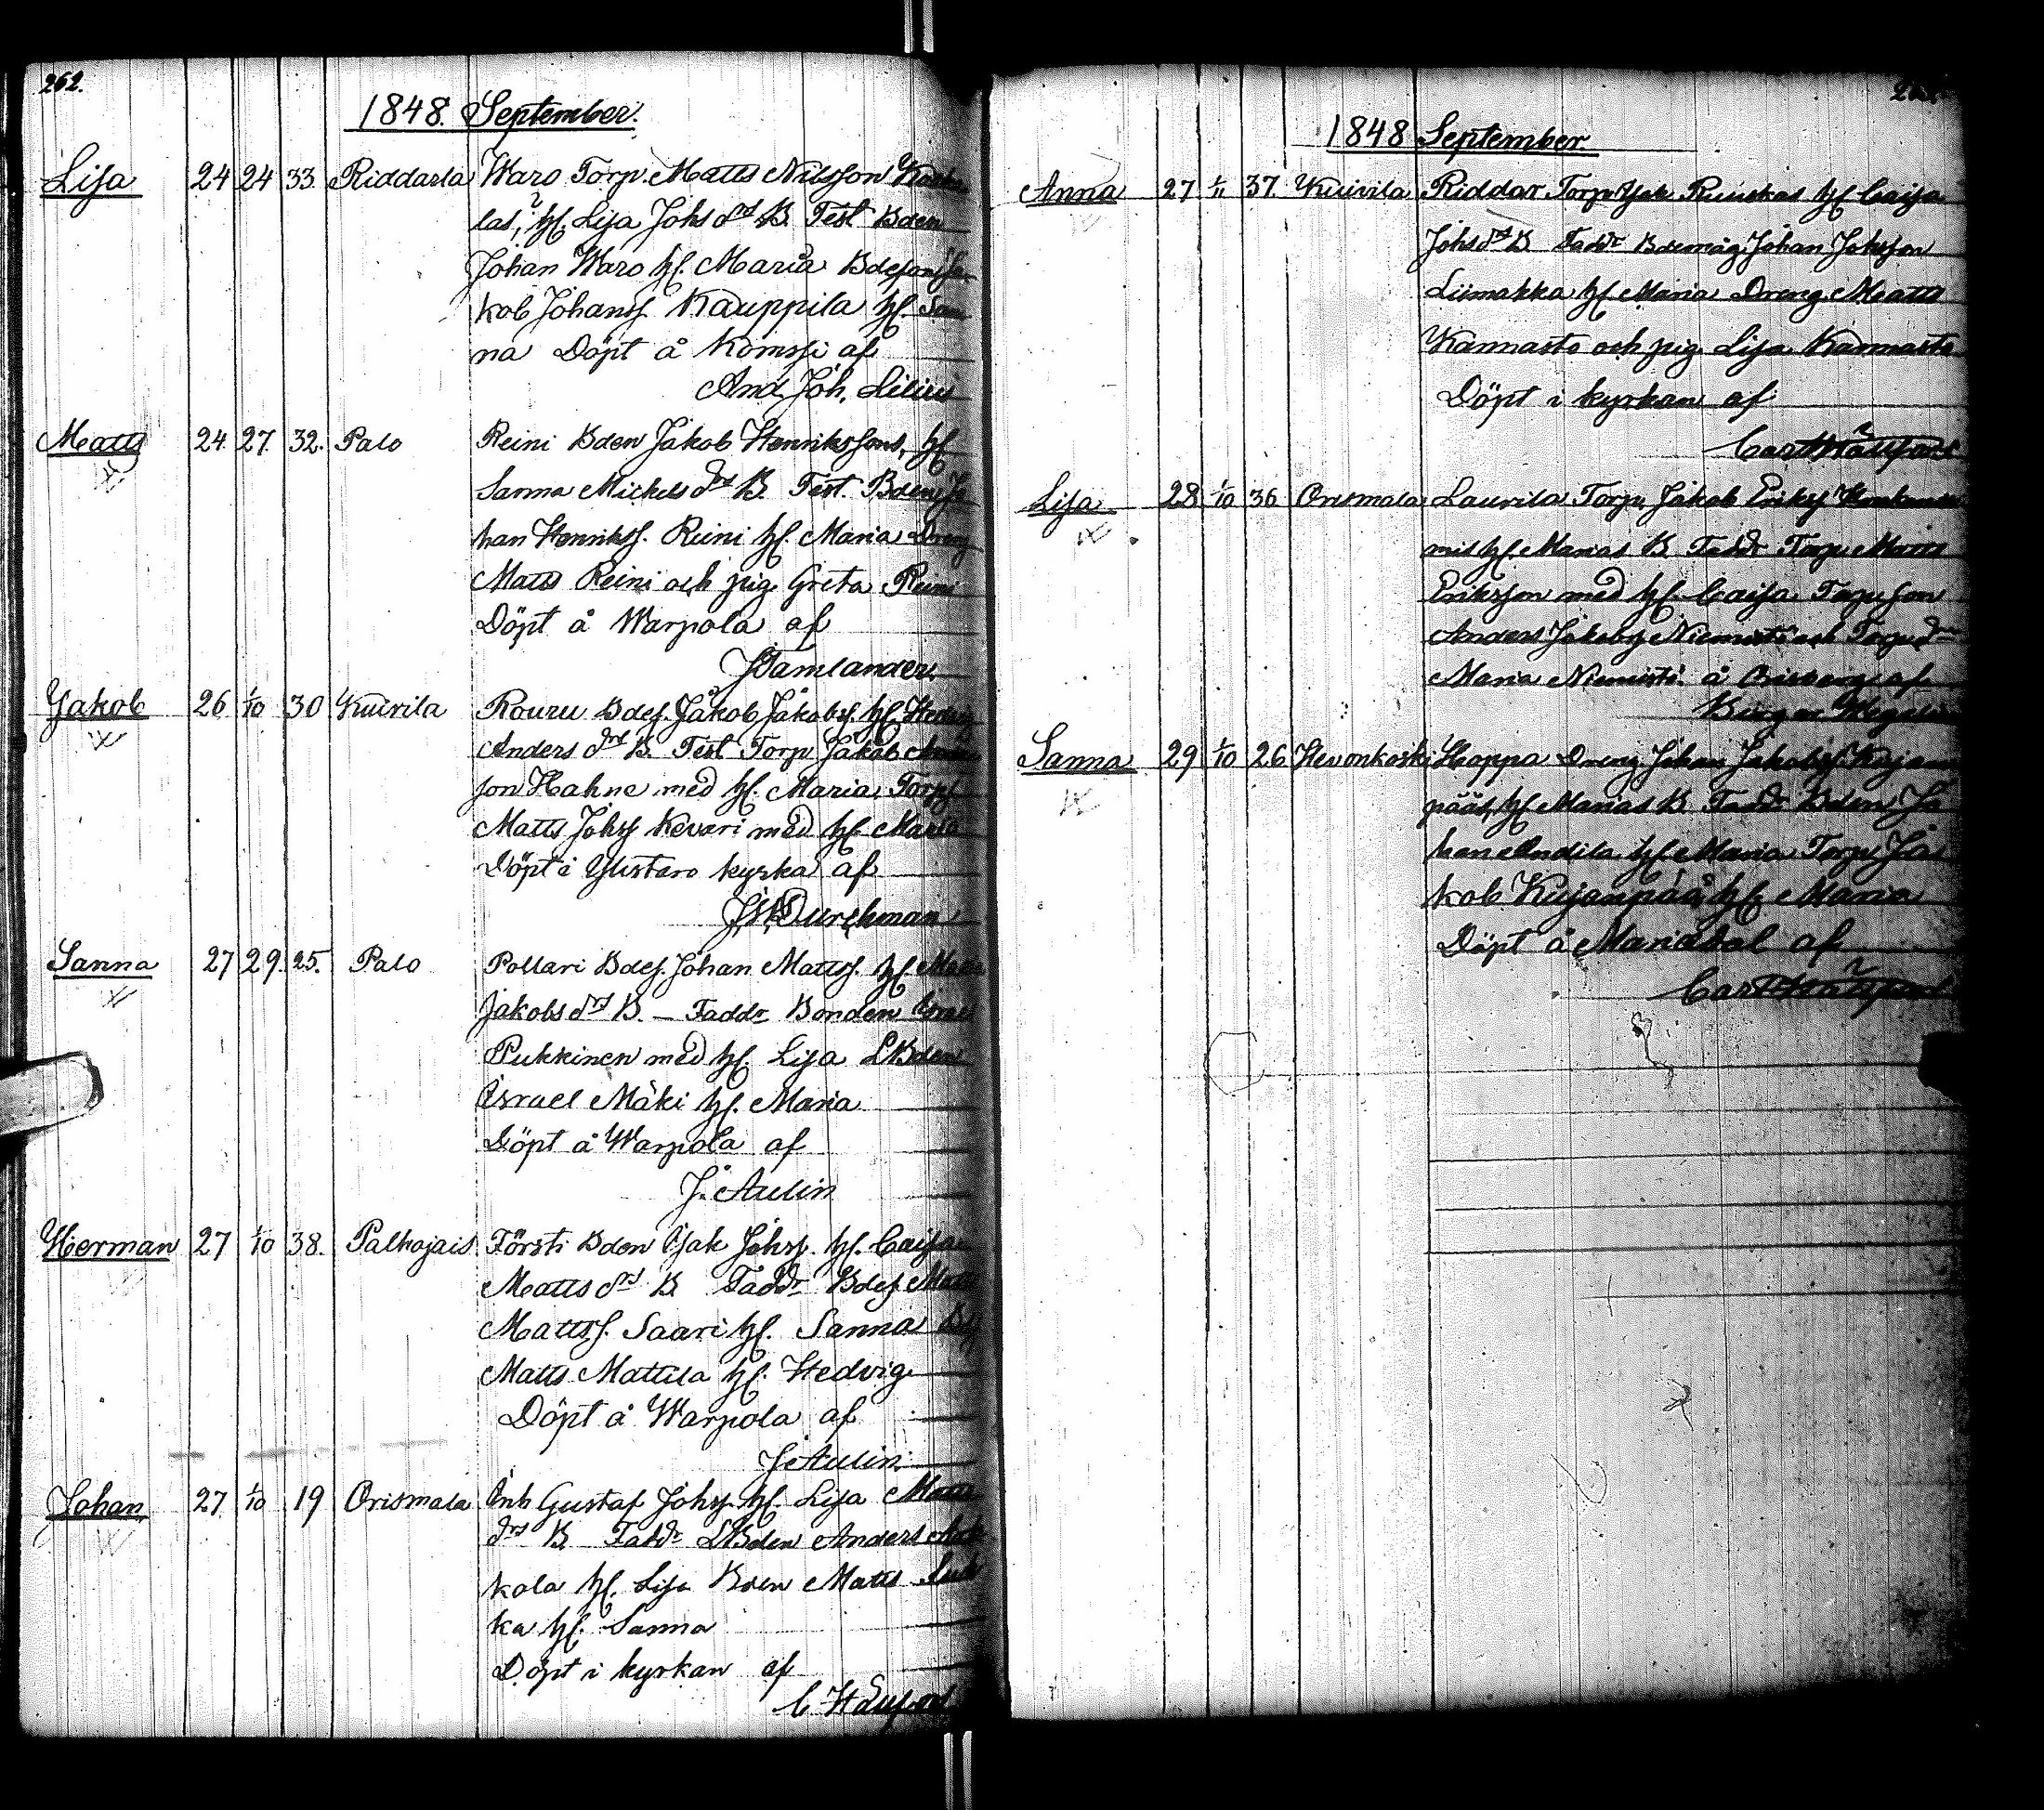 262.
1848. September.
Lisa 24 24 33 Riddarla Waro Torp. Matts Nilsson
las, hf. Lisa Johs drs B. Test. Bden
Johan Waro hf. Maria Bdesonja
kob Johanss. Kauppila hf. San
na Döpt å Komsi af
And. Joh. Lilius
Matts 24. 27. 32. Palo Reini Bden Jakob Henrikssons, hf
Sanna Mickels drs B. Test. Bden Jo
han Henrikss. Reini hf. Maria Dreng
Matts Reini och pig. Greta Reini
Döpt å Warpola af
J Tamlander.
Jakob 26 1/10 30 Kuivila Rouru Bdes. Jakob Jakobs. hf. Hedvig
Anders drs B. Test Torp Jakob
son Hahne med hf. Maria, Torp
Matts Johss Kevari med hf. Maria
Döpt i Ylistaro kyrka af
Durchman
Sanna 27 29. 25. Palo Pollari Bdes. Johan Mattss. hf. Maria
Jakobs drs B. – Faddr Bonden
Pukkinen med hf. Lisa LBden
Israel Mäki hf. Maria
Döpt å Warpola af
J. Aulin
Herman 27 1/10 38. Palhojais Försti Bden Isak Johss. hf. Caisa
Matts drs B. Faddr Bdes Matts
Mattss. Saari hf. Sanna
Matts Mattila hf. Hedvig
Döpt å Warpola af
J Aulin.
Johan 27 1/10 19 Orismala Inh Gustaf Johss. hf. Lisa Matts
drs B. Faddr LBden Anders
kola hf. Lisa Bden Matts
ka hf. Sanna
Döpt i kyrkan af
C
1848 September
Anna 27 1/11 37. Kuivila Riddar Torp Isak Ruuskas hf Caisa
Johs drs B Faddr Bdemåg. Johan Johsson
Liimakka hf Maria Dreng Matts
Kannasto och pig Lisa Kannasto
Döpt i kyrkan af
Carl
Lisa 28 1/10 36 Orismala Laurila Torp. Jakob Eriks
mis hf. Marias B Faddr Torp Matts
Eriksson med hf. Caisa Torp son
Anders Jakobs Niemistö och Torp. dr
Maria Niemistö å Orisberg af
Birger
Sanna 29 1/10 26 Hevonkoski Hoppa Dreng. Johan Jakobs Kujan
pääs, hf. Marias B Faddr Bden Jo
han Andila hf Maria Torp. Ja
kob Kujanpää, hf. Maria
Döpt å Mariadal af
Carl